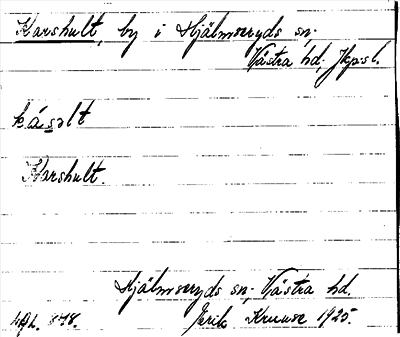 Karshult, by i Hjälmseryds sn.
Västra hd, Jkpsl.
kásəlt
Karshult.
Hjälmseryds sn, Västra hd
Jerik Kruuse 1925.